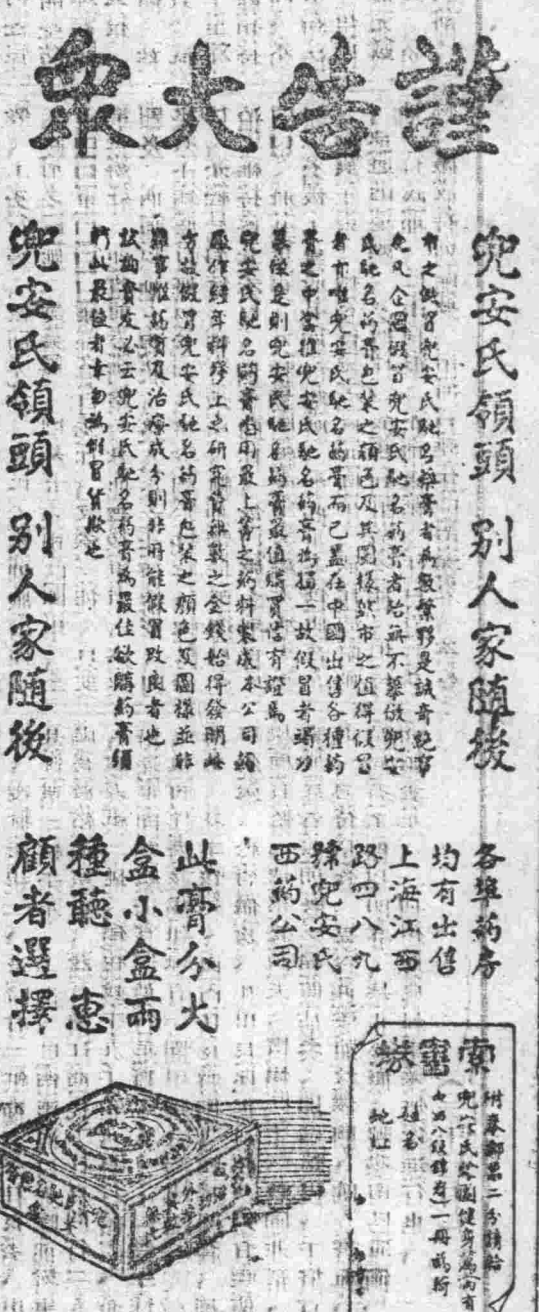 謹告大衆
兜安氏領頭 別人家隨後
市之假冒兜安氏馳名藥膏者為數繁夥是誠奇聞
凡企圖假冒兜安氏馳名药膏者始無不摹倣兜安
氏馳名药膏包裝之顏色及其圖樣於市之值得假冒
者亦唯兜安氏馳名药膏而已蓋在中國出售各種药
膏之中當推兜安氏馳名药膏為獨一故假冒者竭力
摹倣是則兜安氏馳名药膏最值購買信有證焉
兜安氏馳名药膏唯用最上等之药料製成本公司
年科學上之研究費無數之金錢始得發明
方故假冒兜安氏馳名药膏包裝之顏色及圖樣並非
難事惟药質及治療成分則非所能假冒改良者也
兜安氏馳名药膏為最佳欲購药膏須
購此最佳者幸勿為假冒貨欺也
兜安氏領頭 別人家隨後
各埠药房
均有出售
上海江西
路四八九
號兜安氏
西药公司
此膏分大
盒小盒兩
種聽 惠
顧者選擇
索書券
附奉郵票二分請給
兜安氏
一冊為荷
姓名
地址